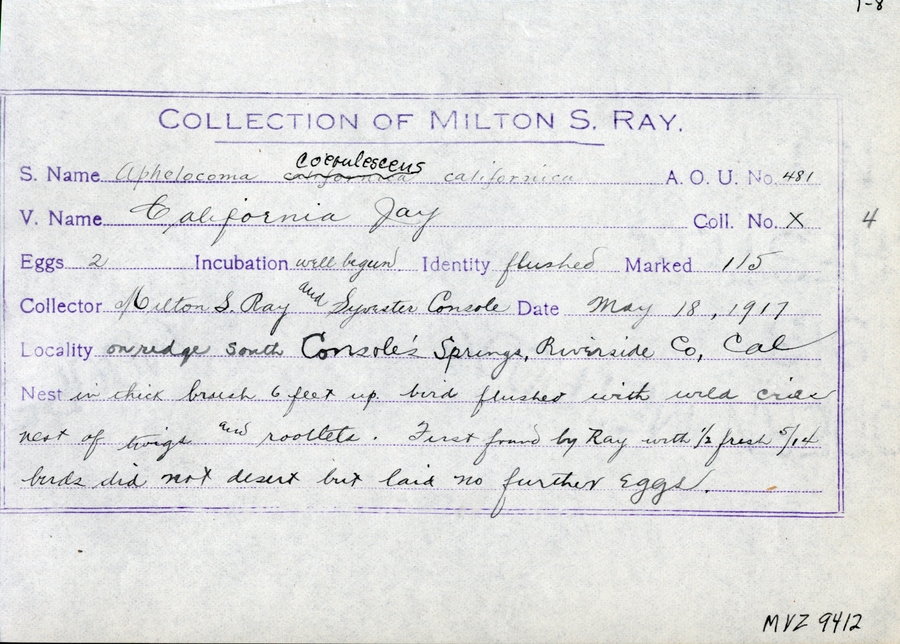 1-8
COLLECTION OF MILTON S. RAY.
coerulescens
S. Name Aphelocoma californica californica A. O. U. No. 481
V. Name California Jay Coll. No. X 4
Eggs 2 Incubation well begun Identity flushed Marked 115
Collector Milton S. Ray and Sylvester Console Date May 18, 1917
Locality on ridge south Console's Springs, Riverside Co, Cal
Nest in thick brush 6 feet up. bird flushed with wild cries
nest of twigs and rootlets. First found by Ray with 1/2 fresh 5/14
birds did not desert but laid no further eggs.
MVZ 9412